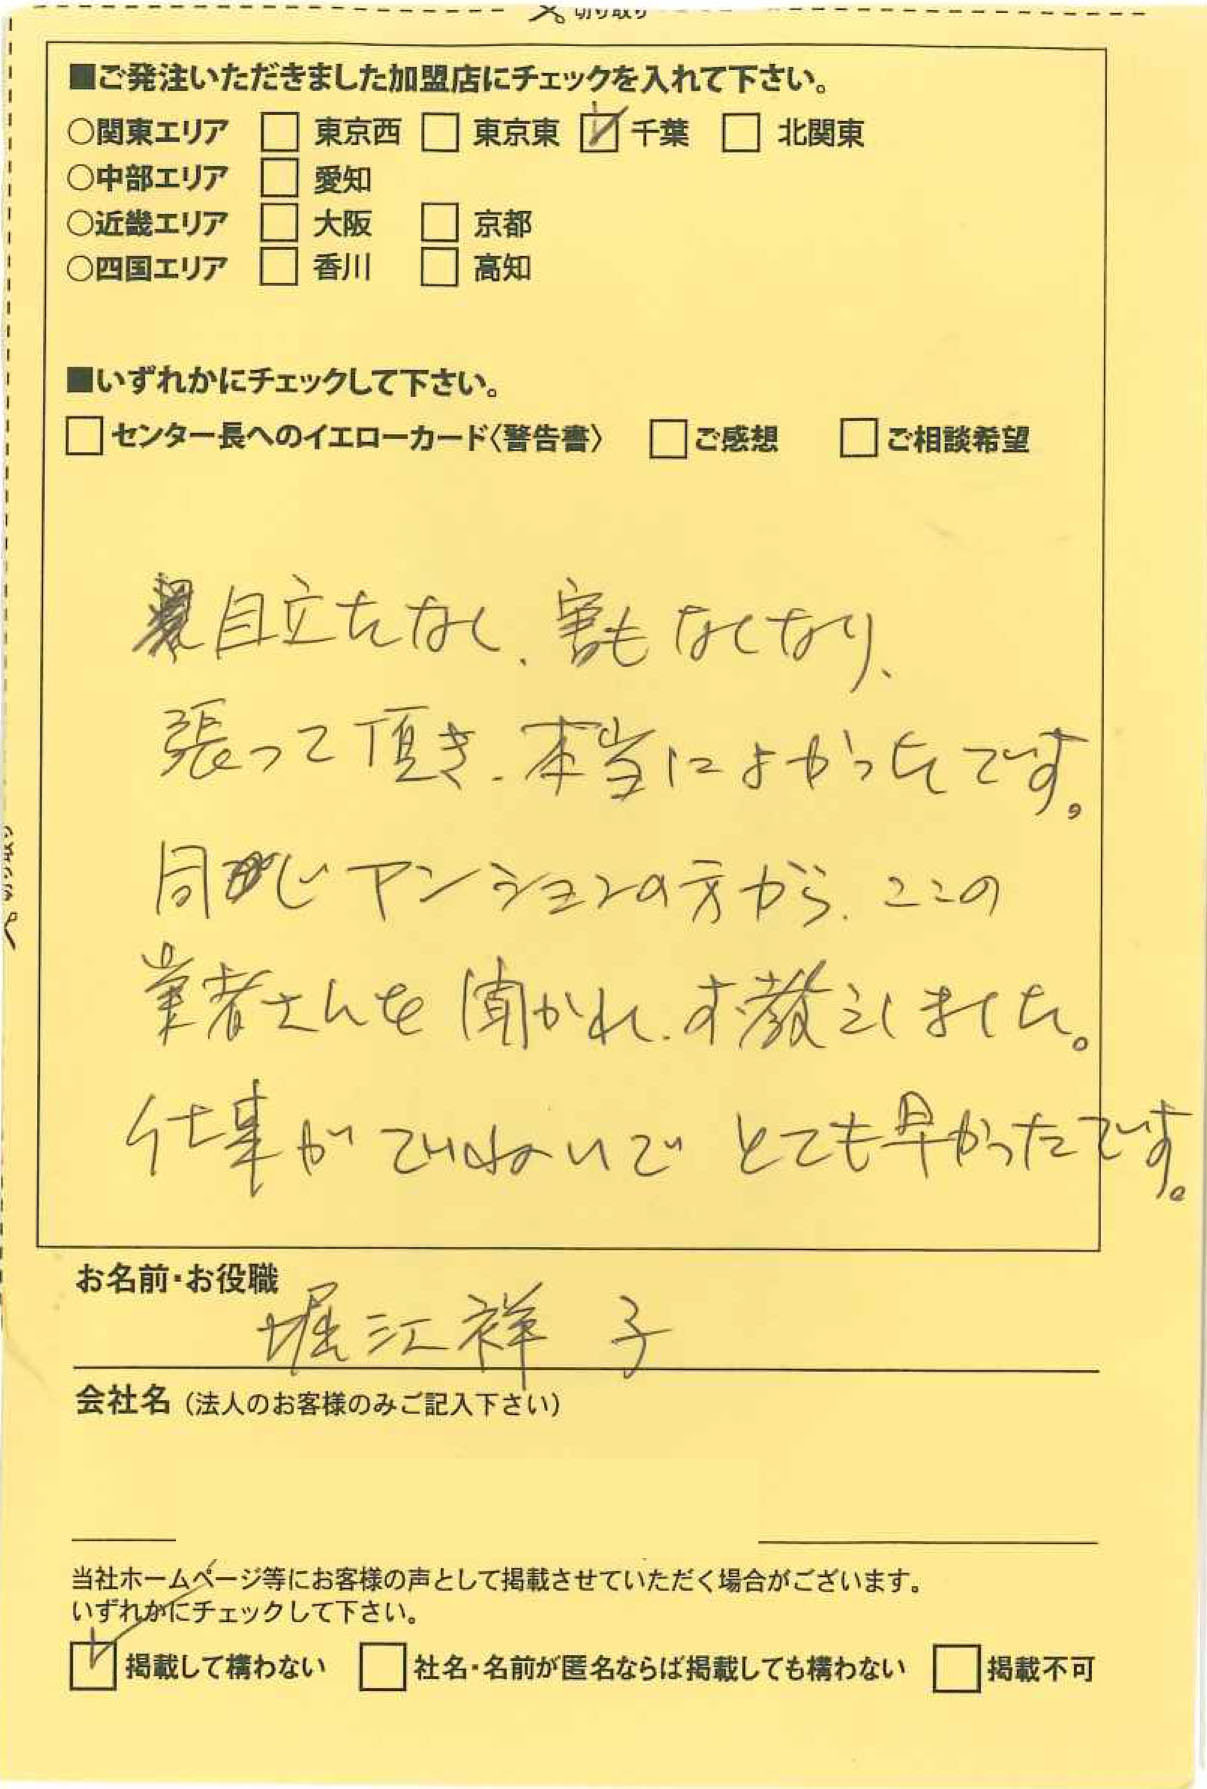 切り取り
■ご発注いただきました加盟店にチェックを入れて下さい。
○関東エリア □ 東京西 □ 東京東 ☑ 千葉 □ 北関東
○中部エリア □ 愛知
○近畿エリア □ 大阪 □ 京都
○四国エリア □ 香川 □ 高知
■いずれかにチェックして下さい。
□センター長へのイエローカード〈警告書〉 □ご感想 □ご相談希望
目立たなく、害もなくなり、
張って頂き、本当によかったです。
同じマンションの方から、ここの
業者さんを聞かれ、教えました。
仕事がていねいで とても早かったです。
お名前・お役職
堀江祥子
会社名（法人のお客様のみご記入下さい）
当社ホームページ等にお客様の声として掲載させていただく場合がございます。
いずれかにチェックして下さい。
☑掲載して構わない □社名・名前が匿名ならば掲載しても構わない □掲載不可